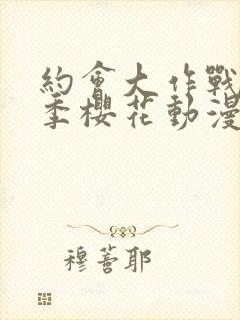 約會大作戰
季櫻花動漫
穆薔耶